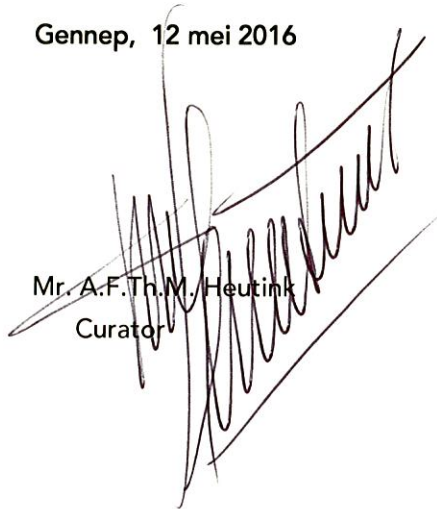 Gennep, 12 mei 2016
Mr. A.F.Th.M. Heutink
Curator